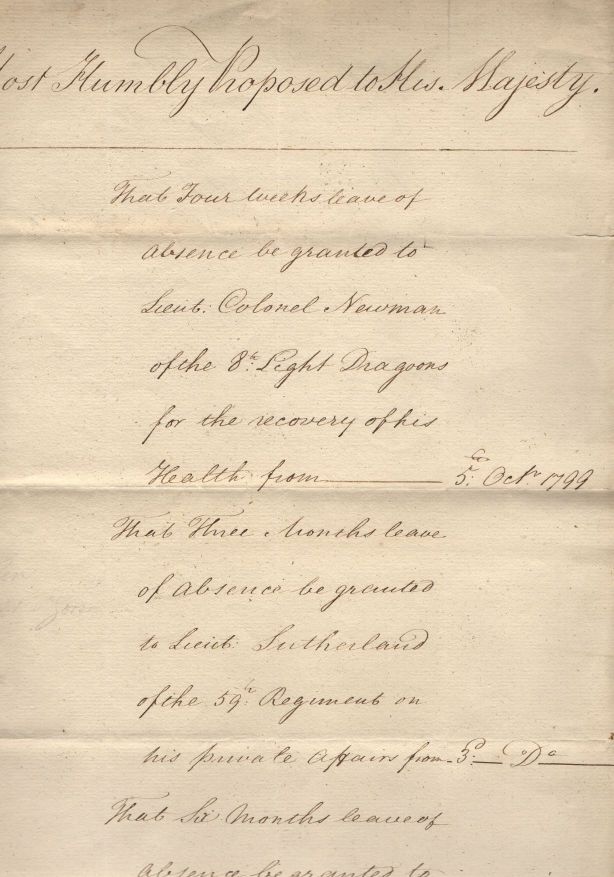 ost Humbly Proposed to His Majesty.
That Four weeks leave of
absence be granted to
Lieut: Colonel Newman
of the 8th: Light Dragoons
for the recovery of his
Health from 5: Octr 1799
That Three Months leave
of absence be granted
to Lieut: Sutherland
of the 59th: Regiment on
his private affairs from 3d: Do
That Six Months leave of
absence be granted to